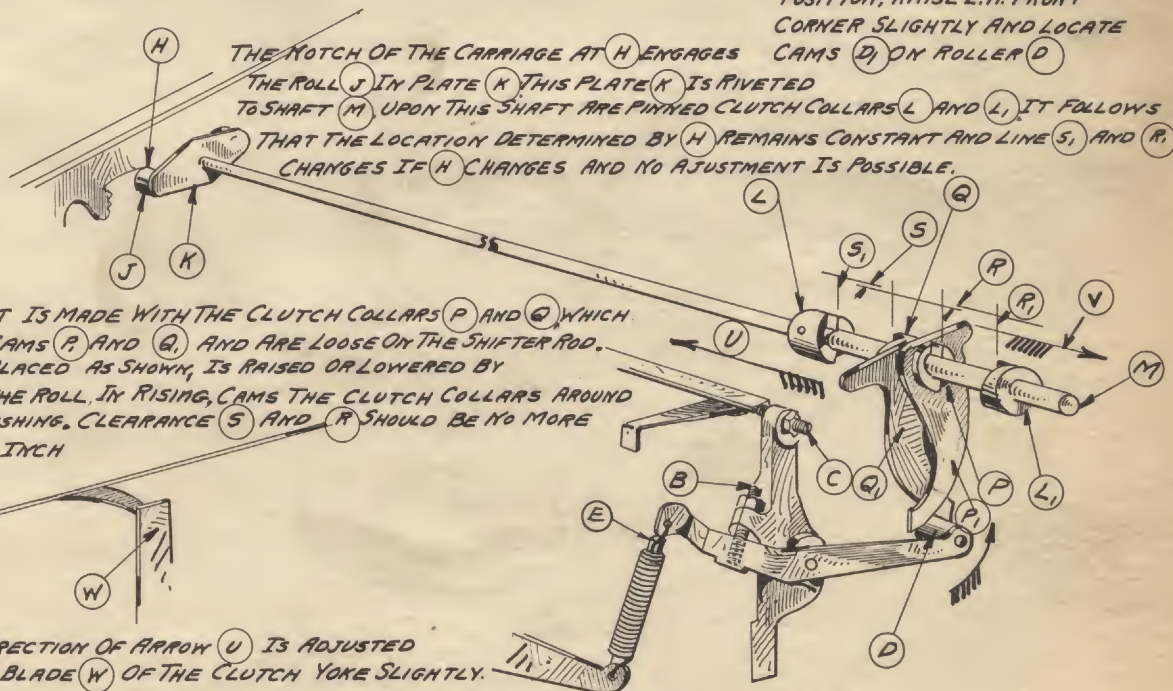 POSITION, RAISE L.H. FRONT
CORNER SLIGHTLY AND LOCATE
CAMS D1 ON ROLLER D
H
THE NOTCH OF THE CARRIAGE AT H ENGAGES
THE ROLL J IN PLATE K THIS PLATE K IS RIVETED
TO SHAFT M. UPON THIS SHAFT ARE PINNED CLUTCH COLLARS L AND L1. IT FOLLOWS
THAT THE LOCATION DETERMINED BY H REMAINS CONSTANT AND LINE S1 AND R1
CHANGES IF H CHANGES AND NO AJUSTMENT IS POSSIBLE.
J
K
L
S1
S
Q
R
R1
V
M
U
T IS MADE WITH THE CLUTCH COLLARS P AND Q, WHICH
CAMS P1 AND Q1 AND ARE LOOSE ON THE SHIFTER ROD.
LACED AS SHOWN, IS RAISED OR LOWERED BY
HE ROLL, IN RISING, CAMS THE CLUTCH COLLARS AROUND
SHING. CLEARANCE S AND R SHOULD BE NO MORE
INCH
B
C
Q1
P
P1
L1
E
D
W
RECTION OF ARROW U IS ADJUSTED
BLADE W OF THE CLUTCH YOKE SLIGHTLY.